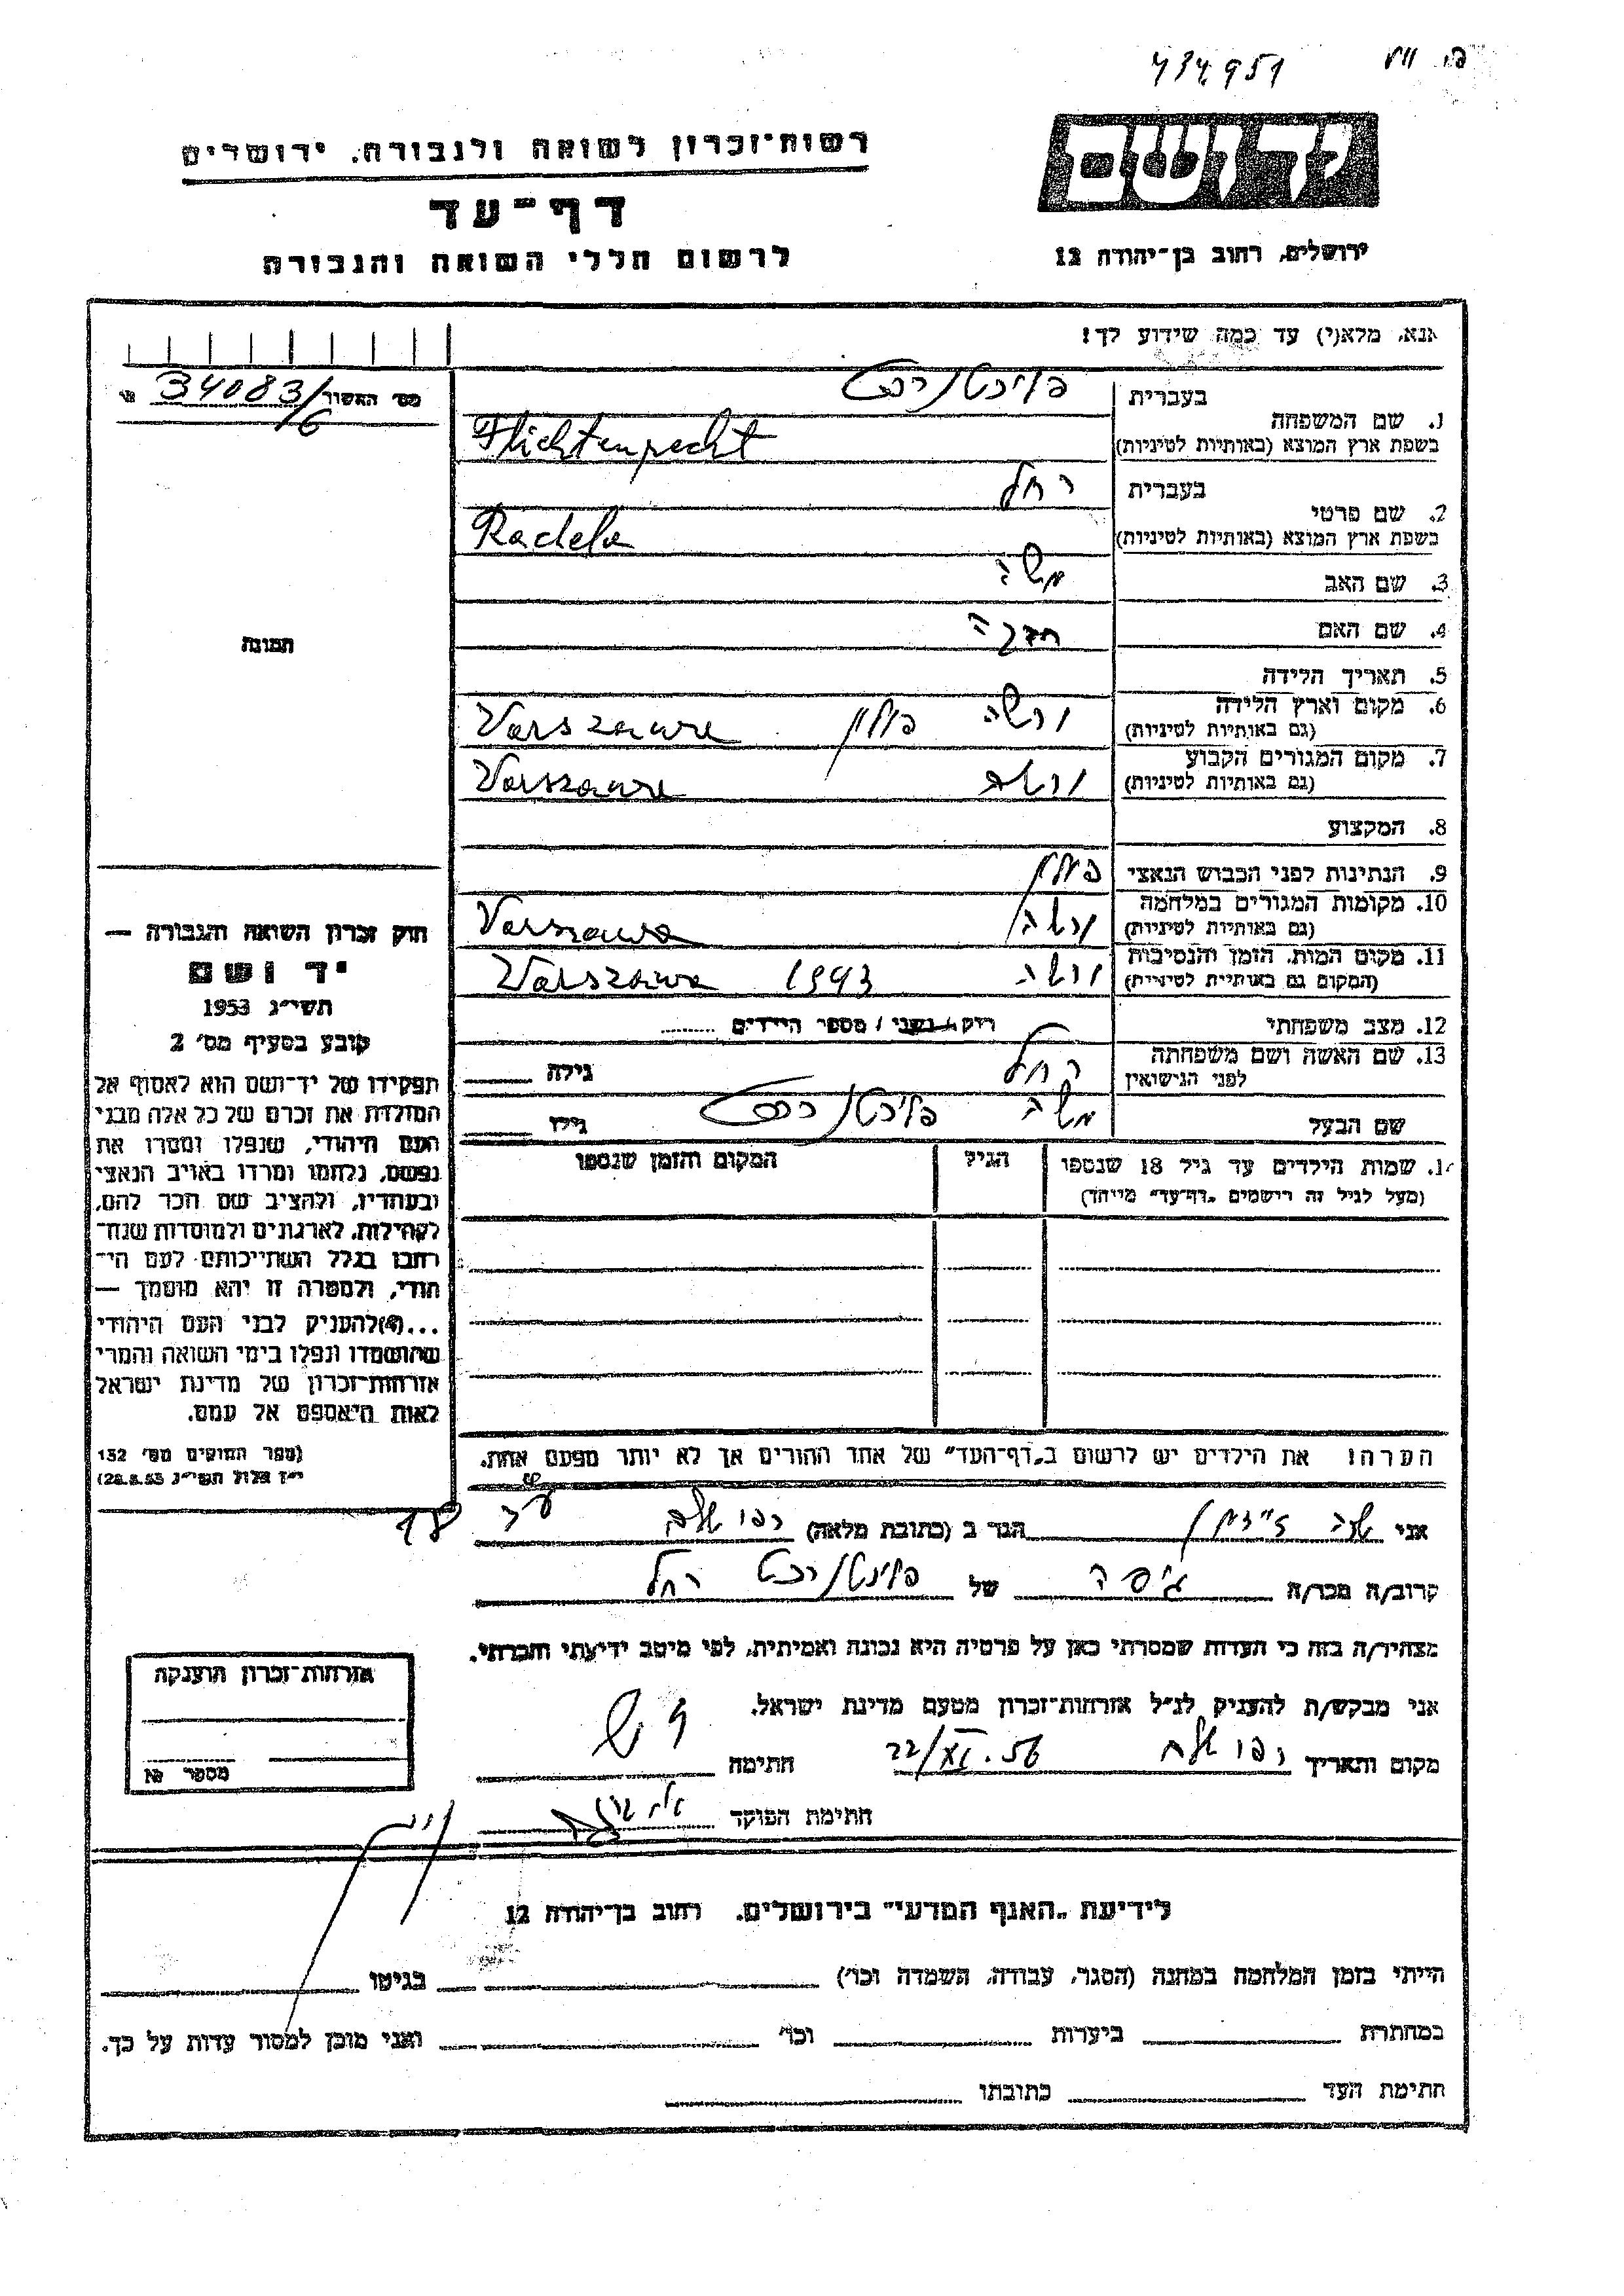 434951
יד ושם
רשות־זכרון לשואה ולגבורה, ירושלים
דף־עד
לרשום חללי השואה והגבורה
ירושלים, רחוב בן־יהודה 12
אנא, מלא(י) עד כמה שידוע לך!
מס׳ האשור 34083/6
1. שם המשפחה
בעברית
בשפת ארץ המוצא (באותיות לטיניות) Flichtenrecht
2. שם פרטי
בעברית רחל
בשפת ארץ המוצא (באותיות לטיניות) Rachela
3. שם האב משה
4. שם האם
5. תאריך הלידה
6. מקום וארץ הלידה ורשה פולין Varszawe
(גם באותיות לטיניות)
7. מקום המגורים הקבוע ורשה Varszawe
(גם באותיות לטיניות)
8. המקצוע
9. הנתינות לפני הכבוש הנאצי פולין
10. מקומות המגורים במלחמה ורשה Varszawa
(גם באותיות לטיניות)
11. מקום המות, הזמן והנסיבות ורשה 1943 Varszawa
(המקום גם באותיות לטיניות)
12. מצב משפחתי רווק / נשוי / מספר הילדים
13. שם האשה ושם משפחתה רחל גילה
לפני הנישואין
שם הבעל משה גילו
14. שמות הילדים עד גיל 18 שנספו הגיל המקום והזמן שנספו
(מעל לגיל זה רישמים „דף־עד״ מייחד)
הערה! את הילדים יש לרשום ב„דף־העד״ של אחד ההורים אך לא יותר מפעם אחת.
תמונה
חוק זכרון השואה והגבורה —
יד ושם
תשי״ג 1953
קובע בסעיף מס׳ 2
תפקידו של יד־ושם הוא לאסוף אל
המולדת את זכרם של כל אלה מבני
העם היהודי, שנפלו ומסרו את
נפשם, נלחמו ומרדו באויב הנאצי
ובעוזריו, ולהציב שם וזכר להם,
לקהילות, לארגונים ולמוסדות שנח־
רחבו בגלל השתייכותם לעם הי־
הודי, ולמטרה זו יהא מוסמך —
...(4)להעניק לבני העם היהודי
שהושמדו ונפלו בימי השואה והמרי
אזרחות־זכרון של מדינת ישראל
לאות היאספם אל עמם.
(ספר החוקים מס׳ 132
י״ז אלול תשי״ג 28.8.53)
אני הגר ב (כתובת מלאה)
קרוב/ה מכר/ה גיסה של רחל
מצהיר/ה בזה כי העדות שמסרתי כאן על פרטיה היא נכונה ואמיתית, לפי מיטב ידיעתי והכרתי.
אני מבקש/ת להעניק לנ״ל אזרחות־זכרון מטעם מדינת ישראל.
מקום ותאריך 22/XI.56 חתימה
חתימת הפוקד
אזרחות־זכרון הוענקה
מספר №
לידיעת „האגף המדעי״ בירושלים, רחוב בן־יהודה 12
הייתי בזמן המלחמה במחנה (הסגר, עבודה, השמדה וכו׳) בגיטו
במחתרת ביערות וכו׳ ואני מוכן למסור עדות על כך.
חתימת העד כתובתו